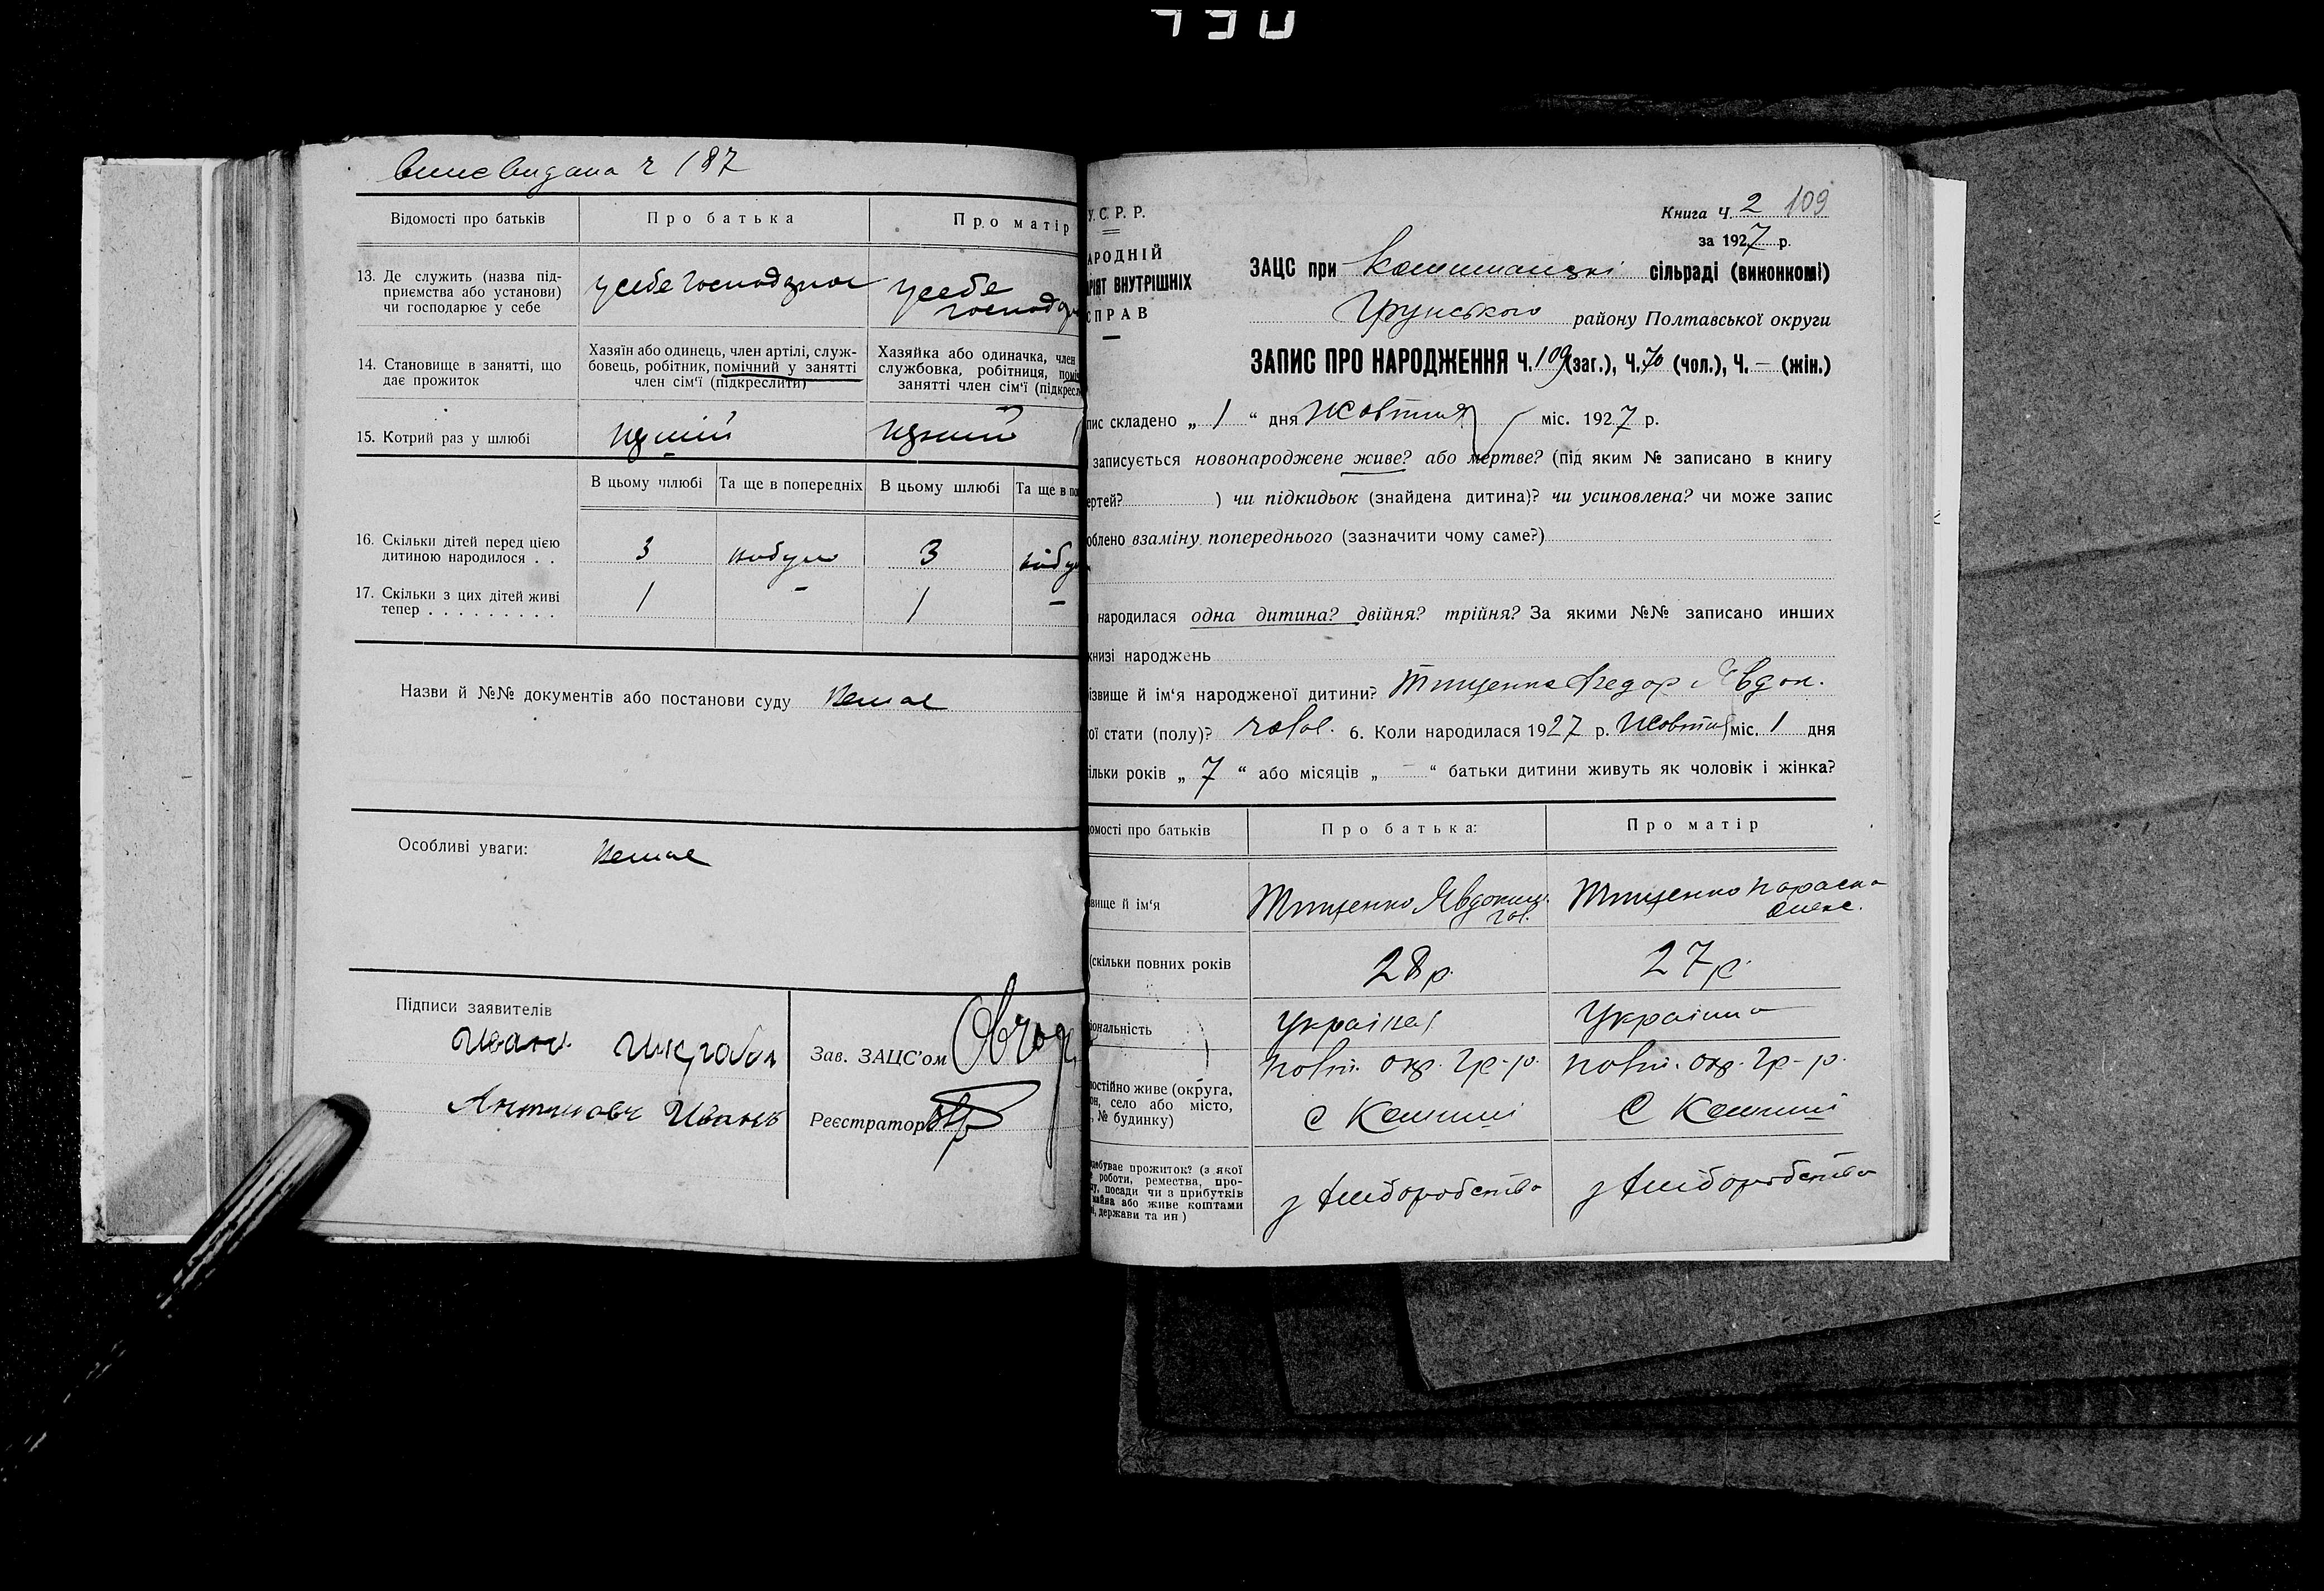 430
Випс видана ч 187
Відомості про батьків
Про батька
Про матір
13. Де служить (назва під-
приємства або установи)
чи господарює у себе
у себе господарює
у себе
господар
14. Становище в занятті, що
дає прожиток
Хазяїн або одинець, член артілі, служ-
бовець, робітник, помічний у занятті
член сім'ї (підкреслити)
Хазяйка або одиначка, член
службовка, робітниця, поміч
занятті член сім'ї (підкресл
15. Котрий раз у шлюбі
перший
перший
В цьому шлюбі
Та ще в попередніх
В цьому шлюбі
Та ще в по
16. Скільки дітей перед цією
дитиною народилося . .
3
небуло
3
небу
17. Скільки з цих дітей живі
тепер . . . . . . . . .
1
-
1
-
Назви й №№ документів або постанови суду Немає
Особливі уваги: Немає
Підписи заявителів
Иван
Антинович Иванъ
Зав. ЗАЦС'ом
Реєстратор
У.С.Р.Р.
АРОДНІЙ
АРІЯТ ВНУТРІШНІХ
СПРАВ
Книга Ч. 2 109
за 1927 р.
ЗАЦС при сільраді (виконкомі)
Грунського району Полтавської округи
ЗАПИС ПРО НАРОДЖЕННЯ Ч. 109 (заг.), Ч. 70 (чол.), Ч. — (жін.)
пис складено „ 1 “ дня Жовтня міс. 1927 р.
записується новонароджене живе? або мертве? (під яким № записано в книгу
ертей? ) чи підкидьок (знайдена дитина)? чи усиновлена? чи може запис
облено взаміну попереднього (зазначити чому саме?)
народилася одна дитина? двійня? трійня? За якими №№ записано инших
книзі народжень
ізвище й ім'я народженої дитини? Тищенко Федор Явдок.
ої стати (полу)? чолов. 6. Коли народилася 1927 р. Жовтня міс. 1 дня
ільки років „ 7 “ або місяців „ — “ батьки дитини живуть як чоловік і жінка?
домості про батьків
Про батька:
Про матір
вище й ім'я
Тищенко Явдоким
Гав.
Тищенко Параска
Олекс.
(скільки повних років
28 р.
27 р.
іональність
Українец
Українка
постійно живе (округа,
он, село або місто,
, № будинку)
Полт. окр. Гр-р.
Полт. окр. Гр-р.
с
с
добуває прожиток? (з якої
роботи, ремества, про-
су, посади чи з прибутків
майна або живе коштами
і, держави та ин)
з хліборобства
з хліборобства